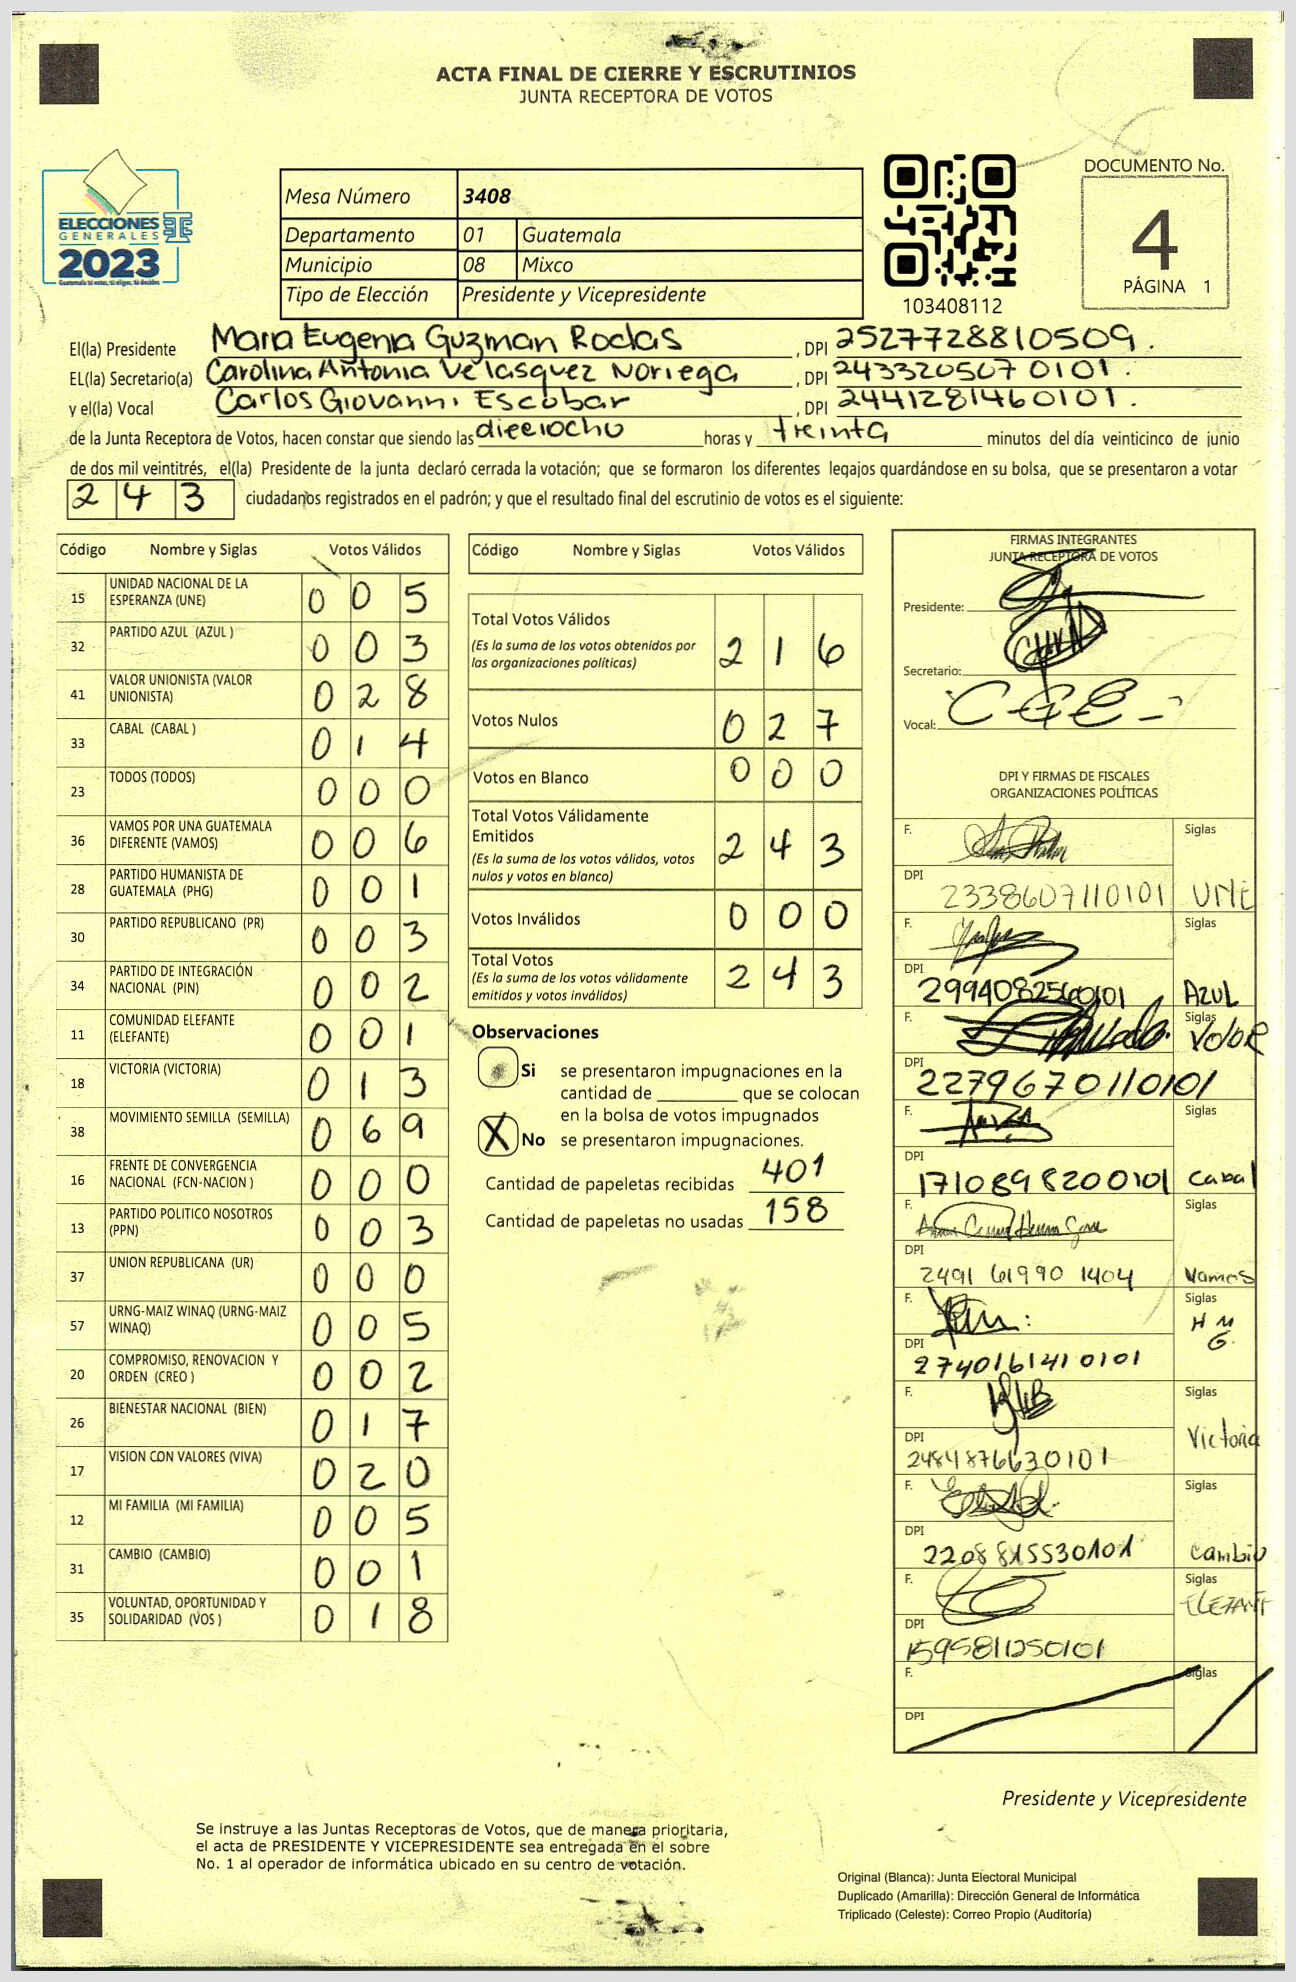 ACTA FINAL DE CIERRE Y ESCRUTINIOS
JUNTA RECEPTORA DE VOTOS
ELECCIONES
GENERALES
2023
Guatemala tú votas, tú eliges, tú decides
Mesa Número 3408
Departamento 01 Guatemala
Municipio 08 Mixco
Tipo de Elección Presidente y Vicepresidente
103408112
DOCUMENTO No.
4
PÁGINA 1
El(la) Presidente Maria Eugenia Guzman Rodas, DPI 2527728810509.
EL(la) Secretario(a) Carolina Antonia Velasquez Noriega, DPI 2433205070101.
y el(la) Vocal Carlos Giovanni Escobar, DPI 2441281460101.
de la Junta Receptora de Votos, hacen constar que siendo las dieciocho horas y treinta minutos del día veinticinco de junio
de dos mil veintitrés, el(la) Presidente de la junta declaró cerrada la votación; que se formaron los diferentes legajos quardándose en su bolsa, que se presentaron a votar
243 ciudadanos registrados en el padrón; y que el resultado final del escrutinio de votos es el siguiente:
Código Nombre y Siglas Votos Válidos
15 UNIDAD NACIONAL DE LA ESPERANZA (UNE) 005
32 PARTIDO AZUL (AZUL ) 003
41 VALOR UNIONISTA (VALOR UNIONISTA) 028
33 CABAL (CABAL ) 014
23 TODOS (TODOS) 000
36 VAMOS POR UNA GUATEMALA DIFERENTE (VAMOS) 006
28 PARTIDO HUMANISTA DE GUATEMALA (PHG) 001
30 PARTIDO REPUBLICANO (PR) 003
34 PARTIDO DE INTEGRACIÓN NACIONAL (PIN) 002
11 COMUNIDAD ELEFANTE (ELEFANTE) 001
18 VICTORIA (VICTORIA) 013
38 MOVIMIENTO SEMILLA (SEMILLA) 069
16 FRENTE DE CONVERGENCIA NACIONAL (FCN-NACION ) 000
13 PARTIDO POLITICO NOSOTROS (PPN) 003
37 UNION REPUBLICANA (UR) 000
57 URNG-MAIZ WINAQ (URNG-MAIZ WINAQ) 005
20 COMPROMISO, RENOVACION Y ORDEN (CREO ) 002
26 BIENESTAR NACIONAL (BIEN) 017
17 VISION CON VALORES (VIVA) 020
12 MI FAMILIA (MI FAMILIA) 005
31 CAMBIO (CAMBIO) 001
35 VOLUNTAD, OPORTUNIDAD Y SOLIDARIDAD (VOS ) 018
Código Nombre y Siglas Votos Válidos
Total Votos Válidos 216
(Es la suma de los votos obtenidos por
las organizaciones políticas)
Votos Nulos 027
Votos en Blanco 000
Total Votos Válidamente
Emitidos 243
(Es la suma de los votos válidos, votos
nulos y votos en blanco)
Votos Inválidos 000
Total Votos 243
(Es la suma de los votos válidamente
emitidos y votos inválidos)
Observaciones
Si se presentaron impugnaciones en la
cantidad de ________ que se colocan
en la bolsa de votos impugnados
X No se presentaron impugnaciones.
Cantidad de papeletas recibidas 401
Cantidad de papeletas no usadas 158
FIRMAS INTEGRANTES
JUNTA RECEPTORA DE VOTOS
Presidente:
Secretario:
Vocal:
DPI Y FIRMAS DE FISCALES
ORGANIZACIONES POLÍTICAS
F. Siglas
DPI 2338607110101 UNE
F. Siglas
DPI 2994082560101 AZUL
F. Siglas
DPI 2279670110101 Valor
F. Siglas
DPI 1710898200101 Cabal
F. Siglas
DPI 2491 61990 1404 Vamos
F. Siglas
DPI 2740161410101 H M G.
F. Siglas
DPI 2484876630101 Victoria
F. Siglas
DPI 2208815530101 Cambio
F. Siglas
DPI 1595811250101 ELEFANT
F. Siglas
DPI
Presidente y Vicepresidente
Se instruye a las Juntas Receptoras de Votos, que de manera prioritaria,
el acta de PRESIDENTE Y VICEPRESIDENTE sea entregada en el sobre
No. 1 al operador de informática ubicado en su centro de votación.
Original (Blanca): Junta Electoral Municipal
Duplicado (Amarilla): Dirección General de Informática
Triplicado (Celeste): Correo Propio (Auditoría)